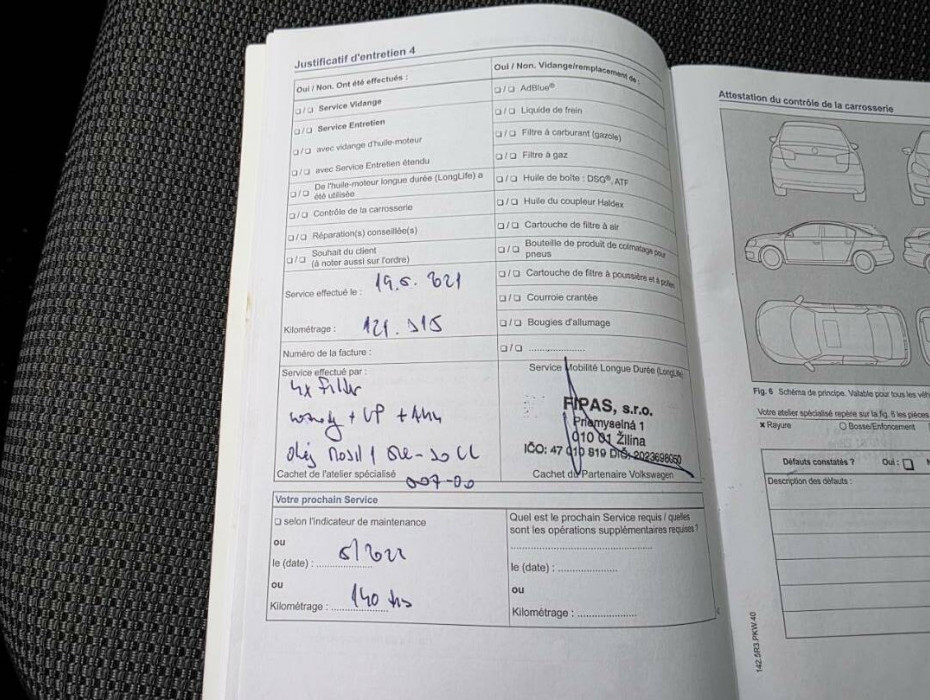 Justificatif d'entretien 4
Oui / Non. Ont été effectués :
❏/❏ Service Vidange
❏/❏ Service Entretien
❏/❏ avec vidange d'huile-moteur
❏/❏ avec Service Entretien étendu
❏/❏ De l'huile-moteur longue durée (LongLife) a
été utilisée
❏/❏ Contrôle de la carrosserie
❏/❏ Réparation(s) conseillée(s)
❏/❏ Souhait du client
(à noter aussi sur l'ordre)
Service effectué le : 19.5.
Kilométrage : 121.
Numéro de la facture :
Service effectué par :
4x filter
+ VP +
olej
Cachet de l'atelier spécialisé
007-00
Oui / Non. Vidange/remplacement de :
❏/❏ AdBlue®
❏/❏ Liquide de frein
❏/❏ Filtre à carburant (gazole)
❏/❏ Filtre à gaz
❏/❏ Huile de boîte : DSG®, ATF
❏/❏ Huile du coupleur Haldex
❏/❏ Cartouche de filtre à air
❏/❏ Bouteille de produit de colmatage pour
pneus
❏/❏ Cartouche de filtre à poussière et à pollen
❏/❏ Courroie crantée
❏/❏ Bougies d'allumage
❏/❏ ......................
Service Mobilité Longue Durée (LongLife)
FIPAS, s.r.o.
Priemyselná 1
010 01 Žilina
IČO: 47 010 819 DIČ: 2023698050
Cachet du Partenaire Volkswagen
Votre prochain Service
❏ selon l'indicateur de maintenance
ou
le (date) : 5/2022
ou
Kilométrage : 140
Quel est le prochain Service requis / quelles
sont les opérations supplémentaires requises ?
le (date) : ......................
ou
Kilométrage : ......................
Attestation du contrôle de la carrosserie
Fig. 6 Schéma de principe. Valable pour tous les
Votre atelier spécialisé repère sur la fig. 6 les pièces
x Rayure O Bosse/Enfoncement
Défauts constatés ? Oui : ❏
Description des défauts :
142.5R3.PKW.40